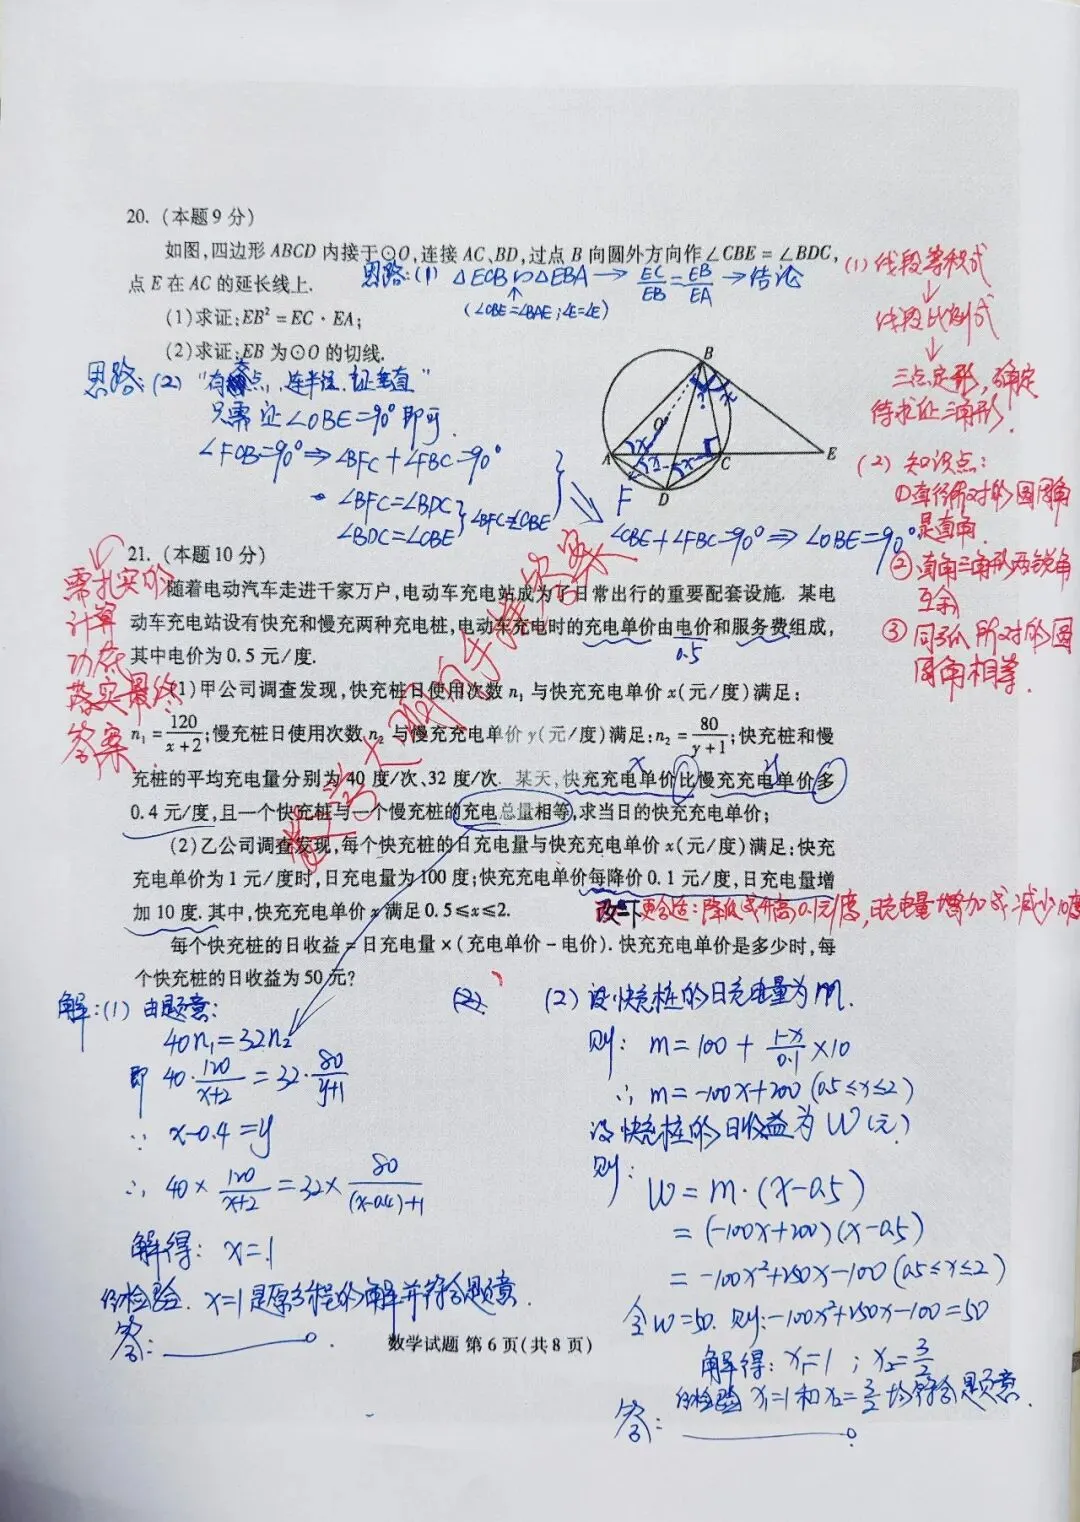 20. (本题9分)
如图,四边形ABCD内接于⊙O,连接AC、BD,过点B向圆外方向作∠CBE=∠BDC,
点E在AC的延长线上.
思路:(1) △ECB∽△EBA → EC/EB = EB/EA → 结论
(∠CBE=∠BAE;∠E=∠E)
(1)求证:EB²=EC·EA;
(2)求证:EB为⊙O的切线.
思路:(2) "有交点,连半径,证垂直"
只需证∠OBE=90°即可.
∠FCB=90°⇒∠BFC+∠FBC=90°
∠BFC=∠BDC
∠BDC=∠CBE
∠BFC=∠CBE
∠CBE+∠FBC=90°⇒∠OBE=90°
A
B
C
D
E
F
O
(1)线段等积式
↓
线段比例式
↓
三点定形,确定
待求证三角形.
(2)知识点:
①直径所对的圆周角
是直角.
②直角三角形两锐角
互余
③同弧所对的圆
周角相等.
21. (本题10分)
需扎实的
计算
功底
落实最终
答案.
随着电动汽车走进千家万户,电动车充电站成为了日常出行的重要配套设施.某电
动车充电站设有快充和慢充两种充电桩,电动车充电时的充电单价由电价和服务费组成,
0.5
其中电价为0.5元/度.
(1)甲公司调查发现,快充桩日使用次数n₁与快充充电单价x(元/度)满足:
n₁=120/(x+2);慢充桩日使用次数n₂与慢充充电单价y(元/度)满足:n₂=80/(y+1);快充桩和慢
x
y
充桩的平均充电量分别为40度/次、32度/次.某天,快充充电单价比慢充充电单价多
0.4元/度,且一个快充桩与一个慢充桩的充电总量相等,求当日的快充充电单价;
(2)乙公司调查发现,每个快充桩的日充电量与快充充电单价x(元/度)满足:快充
充电单价为1元/度时,日充电量为100度;快充充电单价每降价0.1元/度,日充电量增
加10度.其中,快充充电单价x满足0.5≤x≤2.
改一下更合适:降低或升高0.1元/度,日充电量增加或减少10度
每个快充桩的日收益=日充电量×(充电单价-电价).快充充电单价是多少时,每
个快充桩的日收益为50元?
解:(1)由题意:
40n₁=32n₂
即 40·120/(x+2)=32·80/(y+1)
∵ x-0.4=y
∴ 40×120/(x+2)=32×80/((x-0.4)+1)
解得: x=1
经检验. x=1是原方程的解并符合题意.
答:
(2)设快充桩的日充电量为m.
则: m=100+(1-x)/0.1×10
∴ m=-100x+200 (0.5≤x≤2)
设快充桩的日收益为W(元)
则:
W=m·(x-0.5)
=(-100x+200)(x-0.5)
=-100x²+250x-100 (0.5≤x≤2)
令W=50. 则:-100x²+250x-100=50
解得: x₁=1; x₂=3/2
经检验 x₁=1和x₂=3/2均符合题意.
答:
数学试题 第6页(共8页)